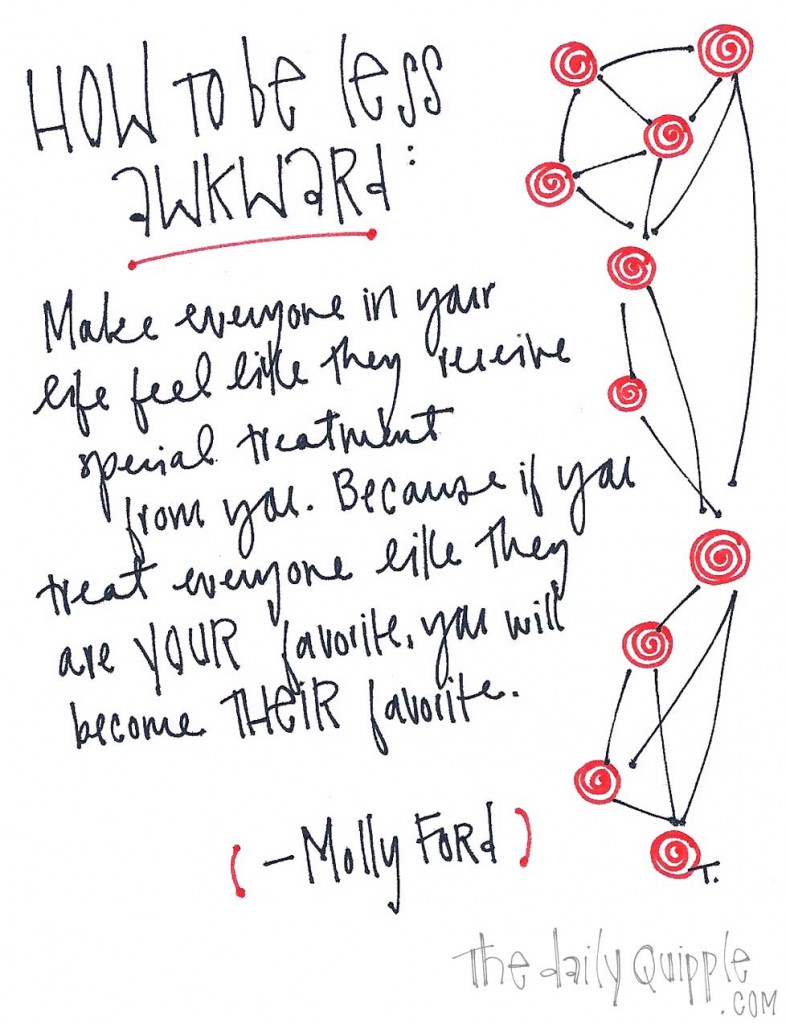 HOW TO be less
aWKWaRd:
Make everyone in your
life feel like they receive
special treatment
from you. Because if you
treat everyone like they
are YOUR favorite, you will
become THEIR favorite.
(-Molly FORd)
T.
The daily Quipple
.COM